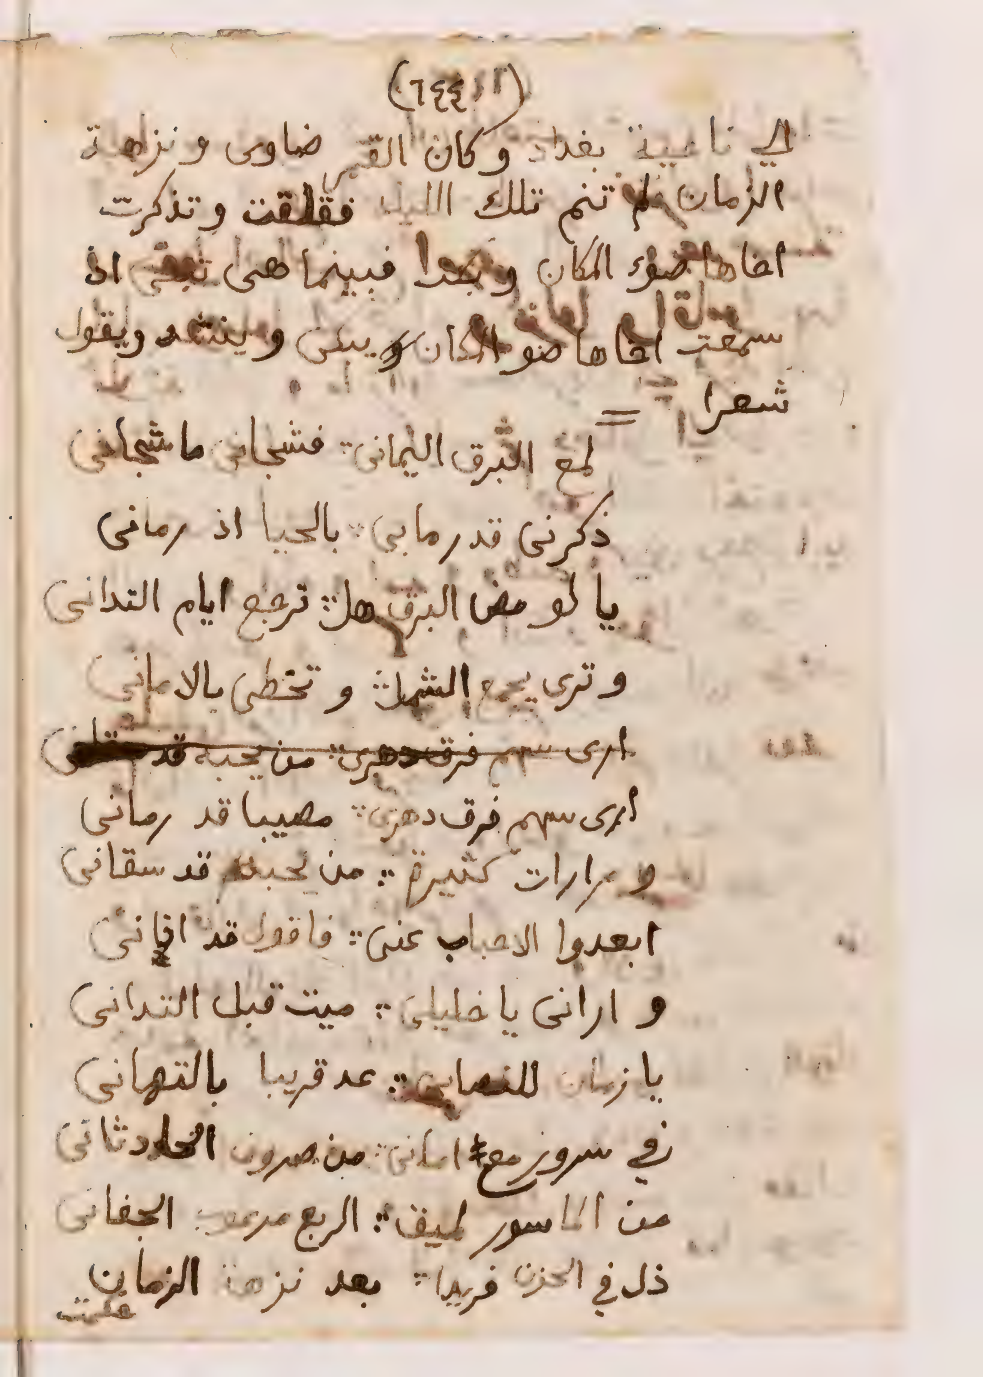 (٦٤٤)
الي ناحية بغداد وكان القمر ضاوى ونزهة
الزمان لم تنم تلك الليله فقلقت وتذكرت
اخاها ضوء المكان فبينما هى تبكى اذ
سمعت اخاها ضو المكان يبكى وينشد ويقول
شعرا =
لمع البرق اليمانى ∴ فشجانى ما شجانى
ذكرنى قد رمابى ∴ بالحيا اذ رمانى
يا لو مض البرق هل ∴ ترجع ايام التدانى
وترى يجمع الشمل ∴ وتخطى بالامانى
ارى سهم فرق دهرى ∴ من يحبه قد
ارى سهم فرق دهرى ∴ مصيبا قد رمانى
و مرارات كثيرة ∴ من يحبه قد سقانى
ابعدوا الاحباب عنى ∴ فاقول قد افانى
و ارانى يا خليلى ∴ ميت قبل التدانى
يا زمان للتصابى ∴ عد قريبا بالتهانى
في سرور مع امانى ∴ من صروف الحادثانى
من الماسور لميف ∴ الربع مرعوب الجفانى
ذل في الحزن فريدا ∴ بعد نزهة الزمان